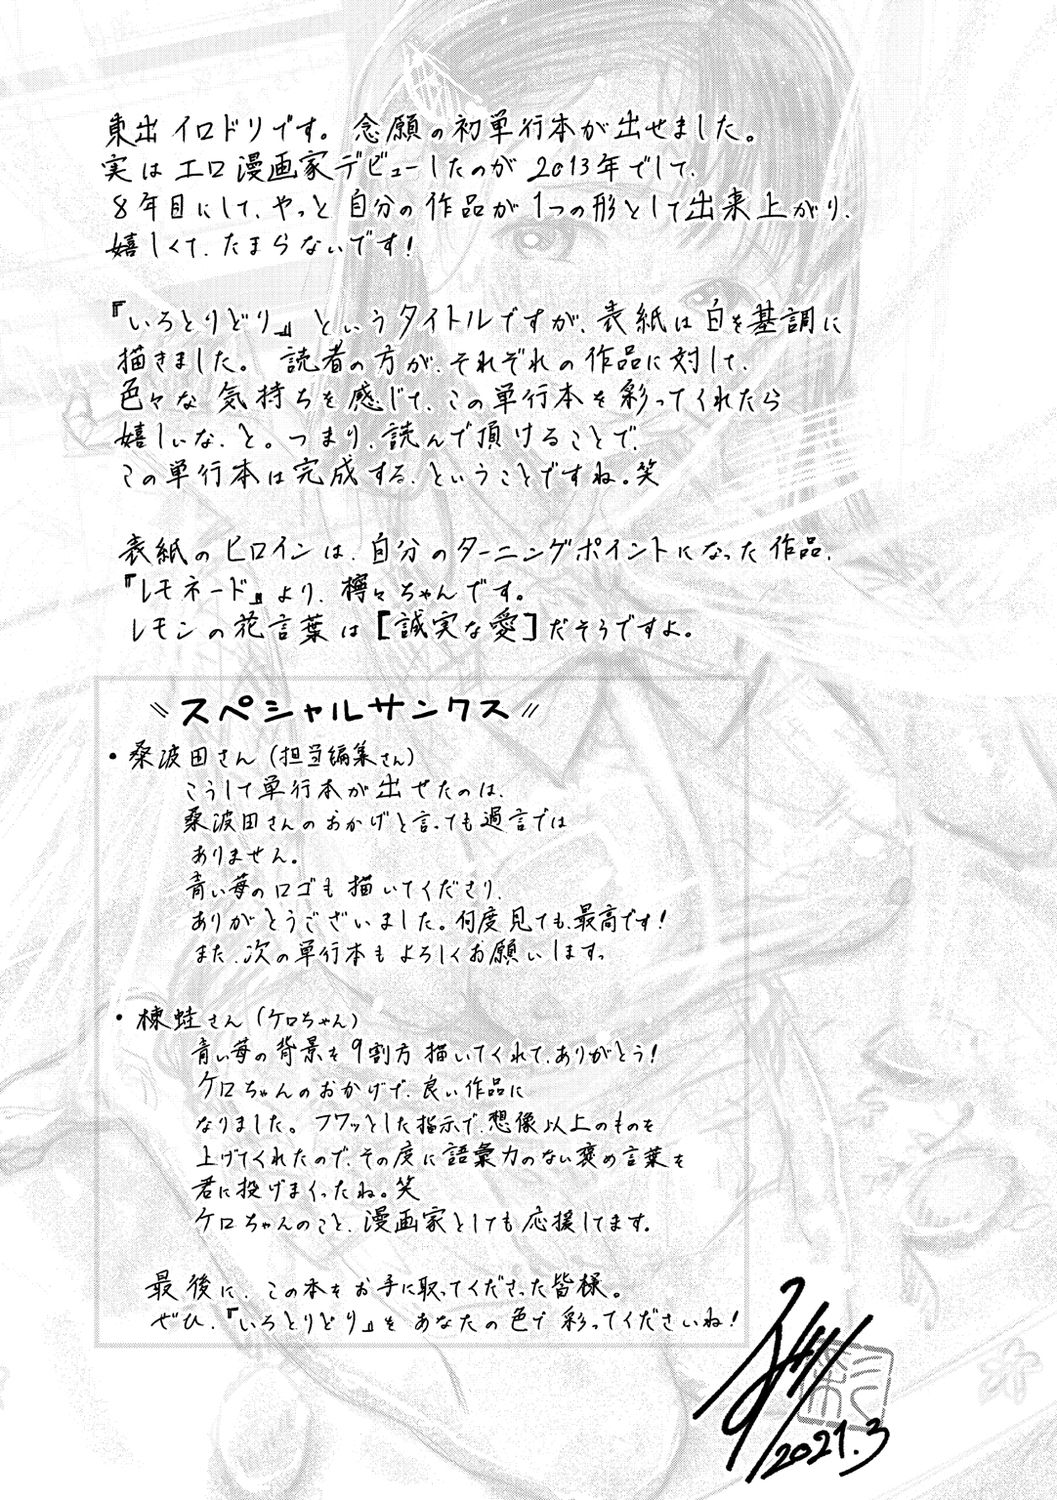 東出イロドリです。念願の初単行本が出せました。
実はエロ漫画家デビューしたのが2013年でして、
8年目にして、やっと自分の作品が1つの形として出来上がり、
嬉しくて、たまらないです!
『いろとりどり』というタイトルですが、表紙は白を基調に
描きました。読者の方が、それぞれの作品に対して、
色々な気持ちを感じて、この単行本を彩ってくれたら
嬉しいな、と。つまり、読んで頂けることで、
この単行本は完成する、ということですね。笑
表紙のヒロインは、自分のターニングポイントになった作品、
『レモネード』より、檸々ちゃんです。
レモンの花言葉は[誠実な愛]だそうですよ。
スペシャルサンクス
・桑波田さん(担当編集さん)
こうして単行本が出せたのは、
桑波田さんのおかげと言っても過言では
ありません。
青い苺のロゴも描いてくださり、
ありがとうございました。何度見ても、最高です!
また、次の単行本もよろしくお願いします。
・楝蛙さん(ケロちゃん)
青い苺の背景を9割方描いてくれて、ありがとう!
ケロちゃんのおかげで、良い作品に
なりました。フワッとした指示で、想像以上のものを
上げてくれたので、その度に語彙力のない褒め言葉を
君に投げまくったね。笑
ケロちゃんのこと、漫画家としても応援してます。
最後に、この本をお手に取ってくださった皆様。
ぜひ、『いろとりどり』をあなたの色で彩ってくださいね!
2021.3